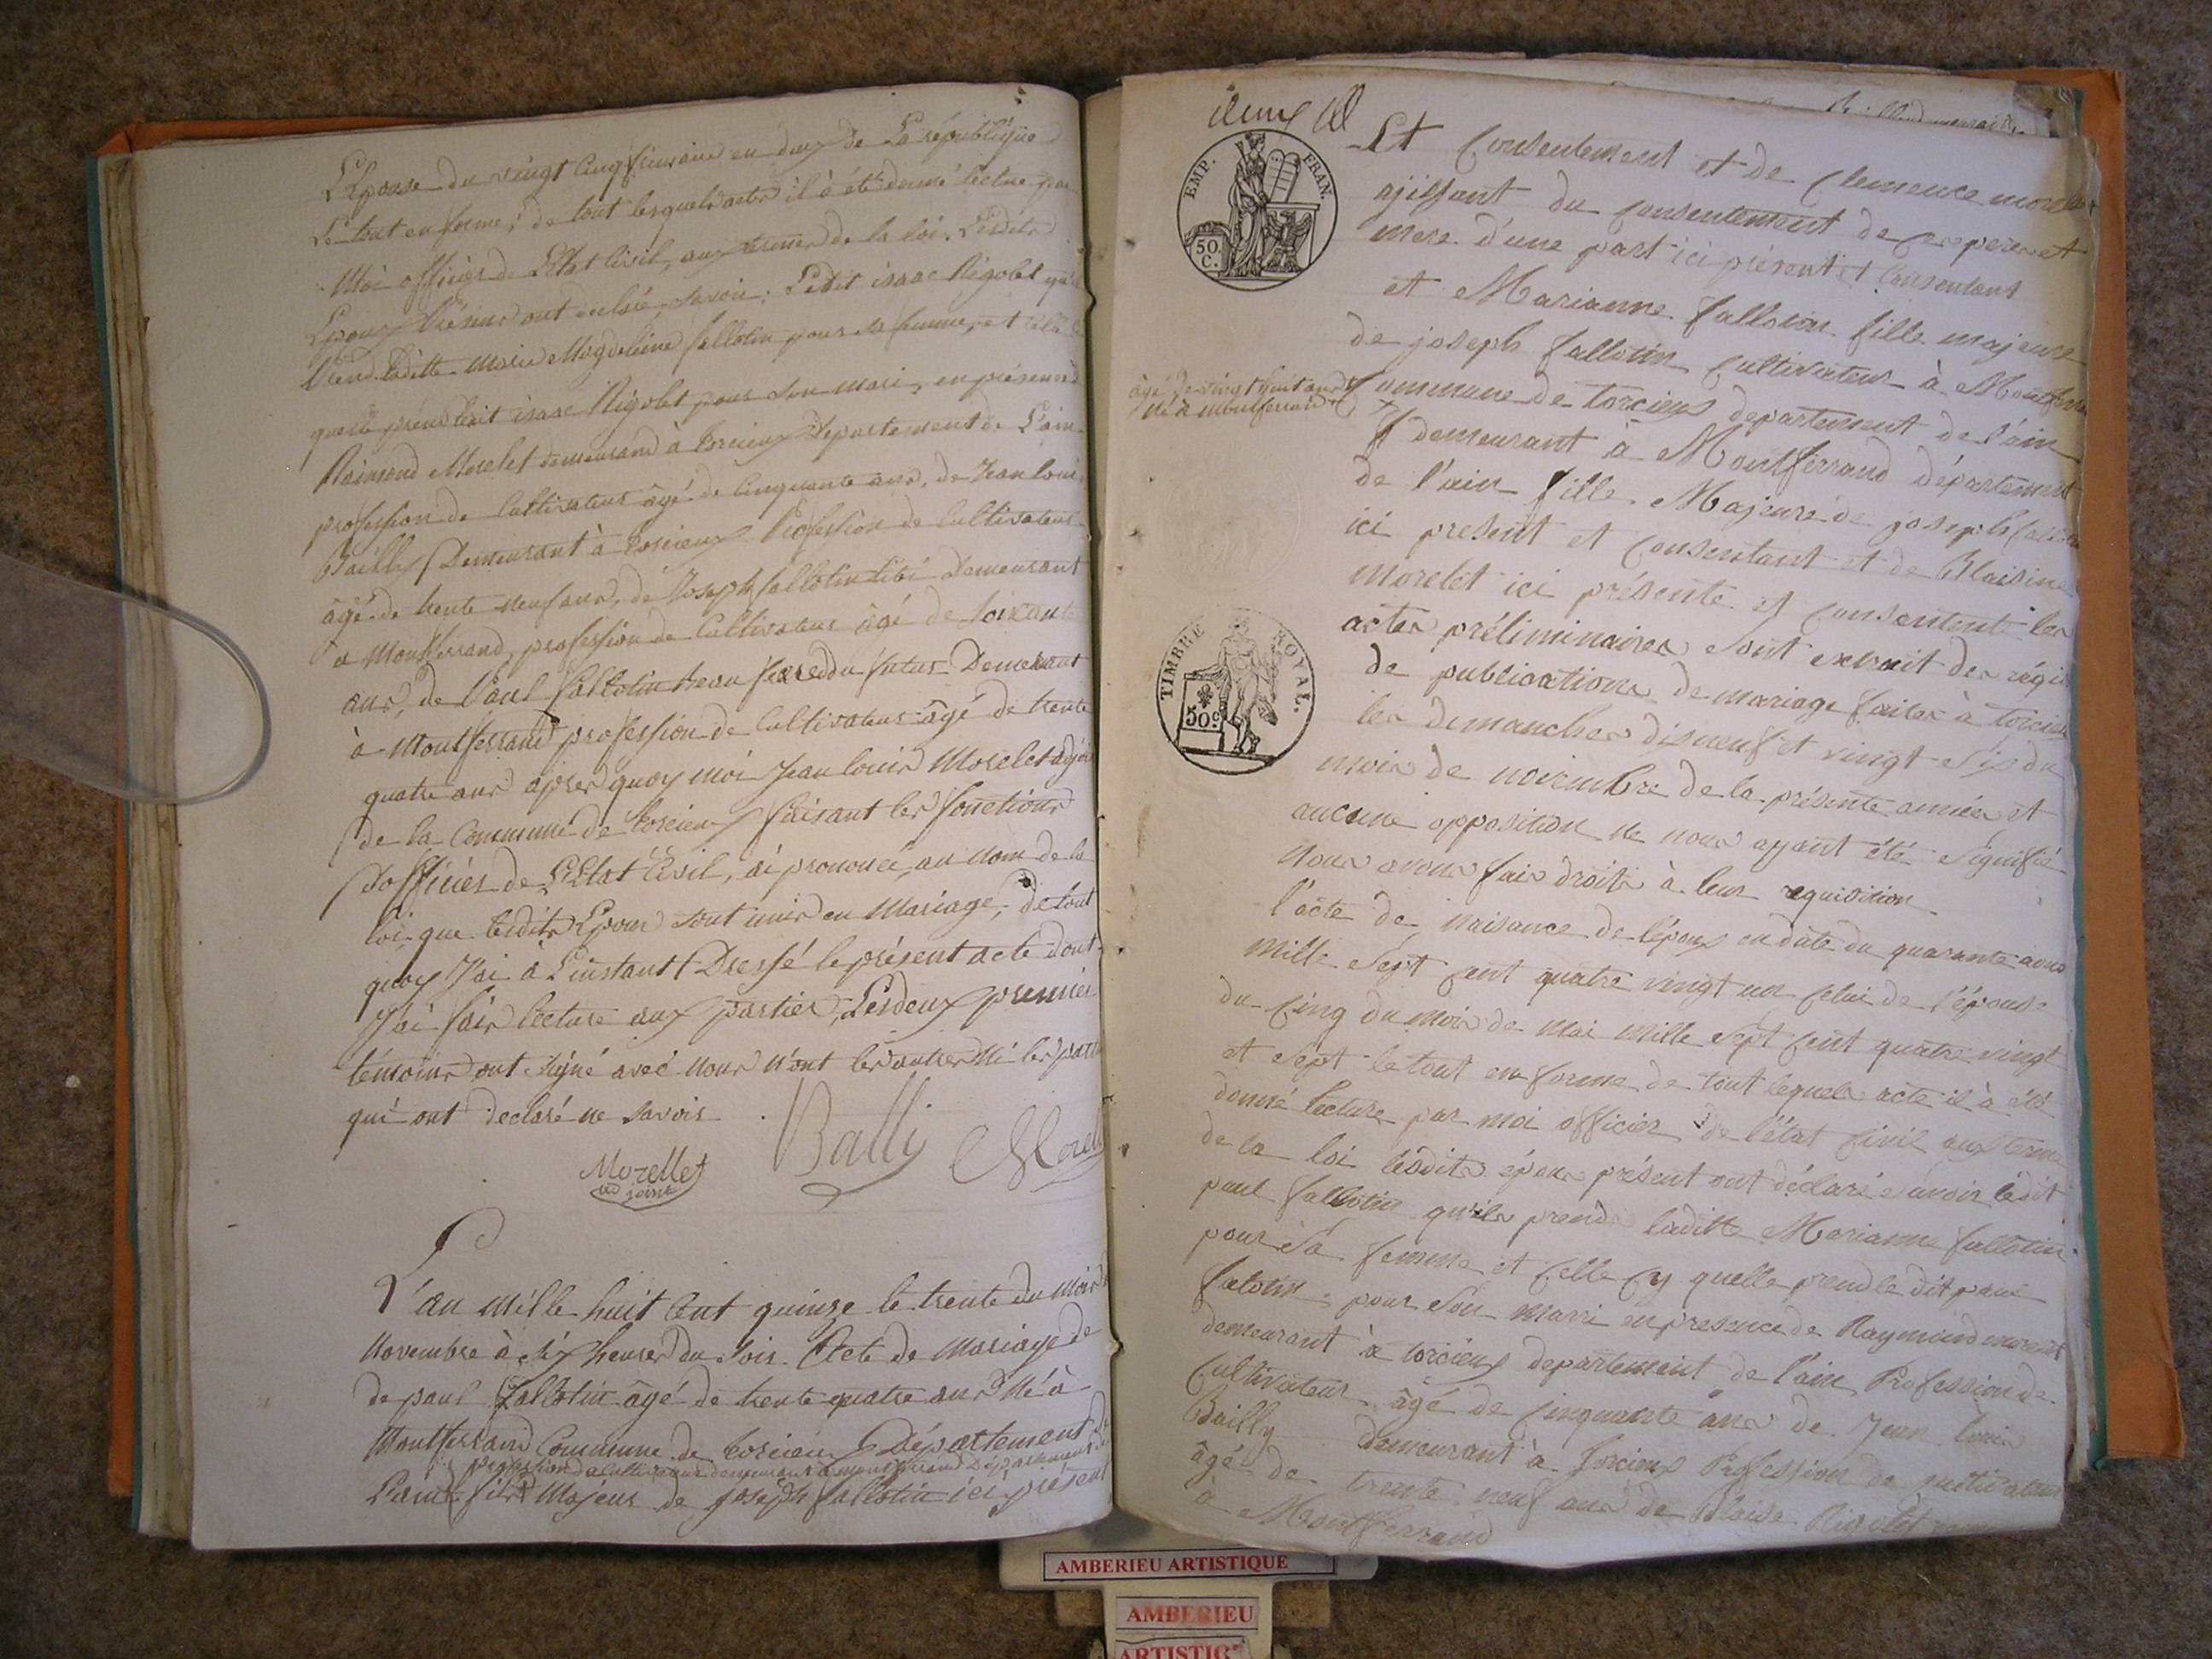 L'Epouse du vingt cinq frimaire en deux de La république
Le tout en forme; de tout lesquels actes il à été donné lecture par
Moi officier de L'Etat Civil, aux termes de la loi. Lesdits
Epoux présens ont déclaré, savoir; Ledit isaac Rigolet qu'il
prend laditte Marie Magdeleine fallotin pour sa femme, et celle
quelle prend ledit isaac Rigolet pour son mari, en présence de
Raimond Morelet demeurand à torcieux Departement de L'ain
profession de Cultivateur âgé de Cinquante ans, de Jean Louis
Bailly Demeurant à torcieux Profession de Cultivateur
âgé de trente neuf ans, de Joseph fallotin Demeurant
a Montferrand, profession de Cultivateur âgé de soixante
ans, de Paul fallotin beau frere du futur Demeurant
à Montferrand profession de Cultivateur âgé de trente
quatre ans après quoy moi Jean Louis Morelet adjoint
de la Commune de torcieux faisant les fonctions
d'officier de L'Etat Civil, ai prononcé, au nom de la
loi que lesdits Epoux sont unis en Mariage; de tout
quoy J'ai à L'instant Dressé le présent acte dont
J'ai fais lecture aux parties, Les deux premier
témoins ont signé avec nous n'ont les autres ni les parties
qui ont declaré ne savoir
Morellet
adjoint
Bailli
Morel
L'an mille huit Cent quinze le trente du mois
Novembre à six heures du soir. Acte de Mariage de
de paul fallotin âgé de trente quatre ans né à
Montferrand Commune de torcieux Département de
profession de cultivateur demeurant à montferrand Département
L'ain fils Majeur de Joseph fallotin ici présent
EMP. FRAN.
50.
C.
Et Consentement et de Clemence morellet
agissant du Consentement de ces pere et
mere d'une part ici présent et Consentant
et Marianne fallotin fille majeure
de joseph fallotin Cultivateur à Montferrand
âgé de vingt huit ans
né à montferrand
Commune de torcieux departement de l'ain
demeurant à Montferrand département
de l'ain fille Majeure de joseph fallotin
ici present et Consentant et de Claisine
morelet ici présente et Consentent les
TIMBRE ROYAL.
50c
actes préliminaires sont extrait des régis
de publications de mariage faites à torcieux
les demanches dis neuf et vingt six du
mois de novembre de la présente année et
aucune opposition ne nous ayant été signifié
Nous avons fais droits à leur requisition
l'acte de naisance de l'époux en date du quarante aoust
Mille Sept cent quatre vingt un celui de l'épouse
du Cinq du mois de mai mille sept cent quatre vingt
et sept le tout en forme de tout lequels acte il à été
donné lecture par moi officier de l'état civil aux terme
de la loi lesdits époux présent ont déclaré savoir ledit
paul fallotin qu'ils prends laditte Marianne fallotin
pour sa femme et Celle Cy quelle prend le dit paul
falotin pour son marri en presence de Raymond morelet
demeurant à torcieux departement de l'ain Profession de
Cultivateur âgé de Cinquante ans de Jean Louis
Bailly demeurant à torcieux Profession de cultivateur
âgé de trente neuf ans de Blaise Rigolet
à Montferrand
AMBERIEU ARTISTIQUE
AMBERIEU
ARTISTIQ